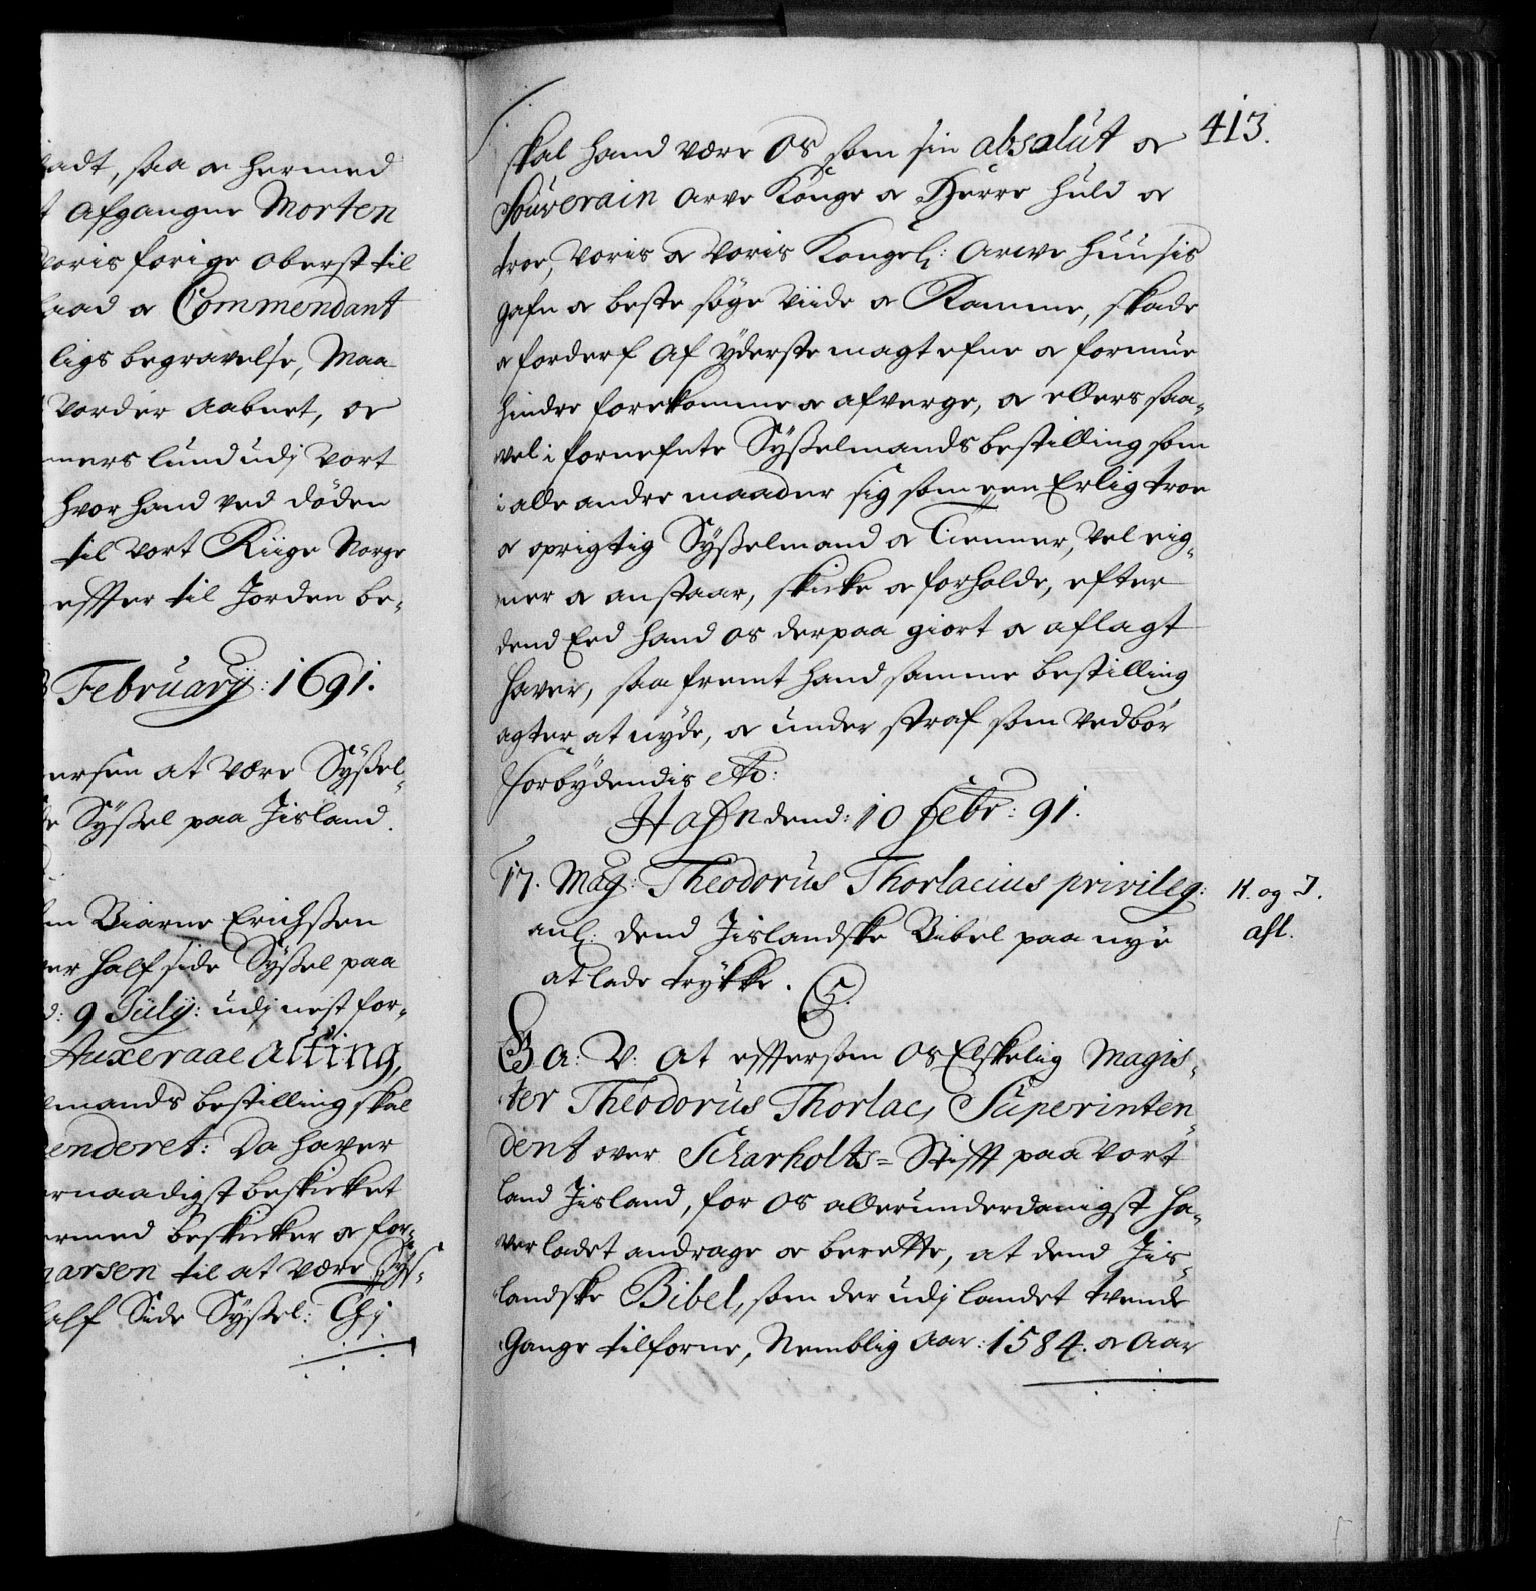 adt, saa er hermed
afgangne Morten
voris forige Oberst til
Commendant
ligs begravelse, Maa
Vorder aabnet, oc
lund udj Vort
hvor hand ved döden
til Vort Riige Norge
effter til Jorden be-
February: 1691.
ersen at være Sÿssel-
Sÿssel paa Jisland.
Biarne Erichssen
half side Sÿssel paa
9 Julÿ: udj nest for-
Auxeraae alting,
mands bestilling skal
enderet: Da haver
naadigst beskicket
ermed beskicker oc for-
arsen til at være Sÿs-
alf Side Sÿssel: Thj
413.
skal hand være Os som sin absolut oc
Souverain arve Konge oc Herre huld oc
troe, Voris oc Voris Kongel: Arve Huusis
gafn oc beste söge viide oc Ramme, skade
oc forderf af ÿderste magt efne oc formue
hindre forekomme oc afverge, oc ellers saa-
vel i fornefnte Sÿsselmands bestilling som
i alle andre maader sig som een Erlig troe
oc oprigtig Sÿsselmand oc Tienner, vel eig-
ner oc anstaar, skicke oc forholde, efter
dend Eed hand os derpaa giort oc aflagt
haver, saa fremt hand samme bestilling
agter at nÿde, oc under straf som vedbör
forbÿdendis etc:
Hafn dend: 10 Febr: 91.
17. Mag: Theodorus Thorlacius privileg:
anl: dend Jislandske Bibel paa nye
at lade trÿkke.
H. og I.
afl.
G. a: V: at effterson Os Elskelig Magis-
ter Theodorus Thorlac, Superinten-
dent over Scharholts= Stifft paa Vort
land Jisland, for Os allerunderdanigst ha-
ver ladet andrage oc berette, at dend Jis-
landske Bibel, som der udj landet tvende
Gange tilforne, Nemblig Aar: 1584. oc Aar